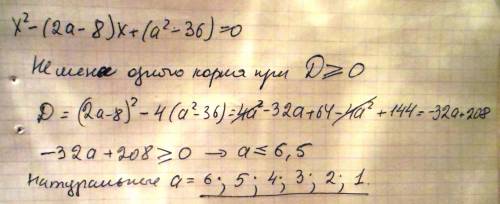 x² - (2a - 8)x + (a² - 36) = 0
Не менее одного корня при D ⩾ 0
D = (2a - 8)² - 4(a² - 36) = 4a² - 32a + 64 - 4a² + 144 = -32a + 208
-32a + 208 ⩾ 0 → a ⩽ 6,5
Натуральные a = 6; 5; 4; 3; 2; 1.